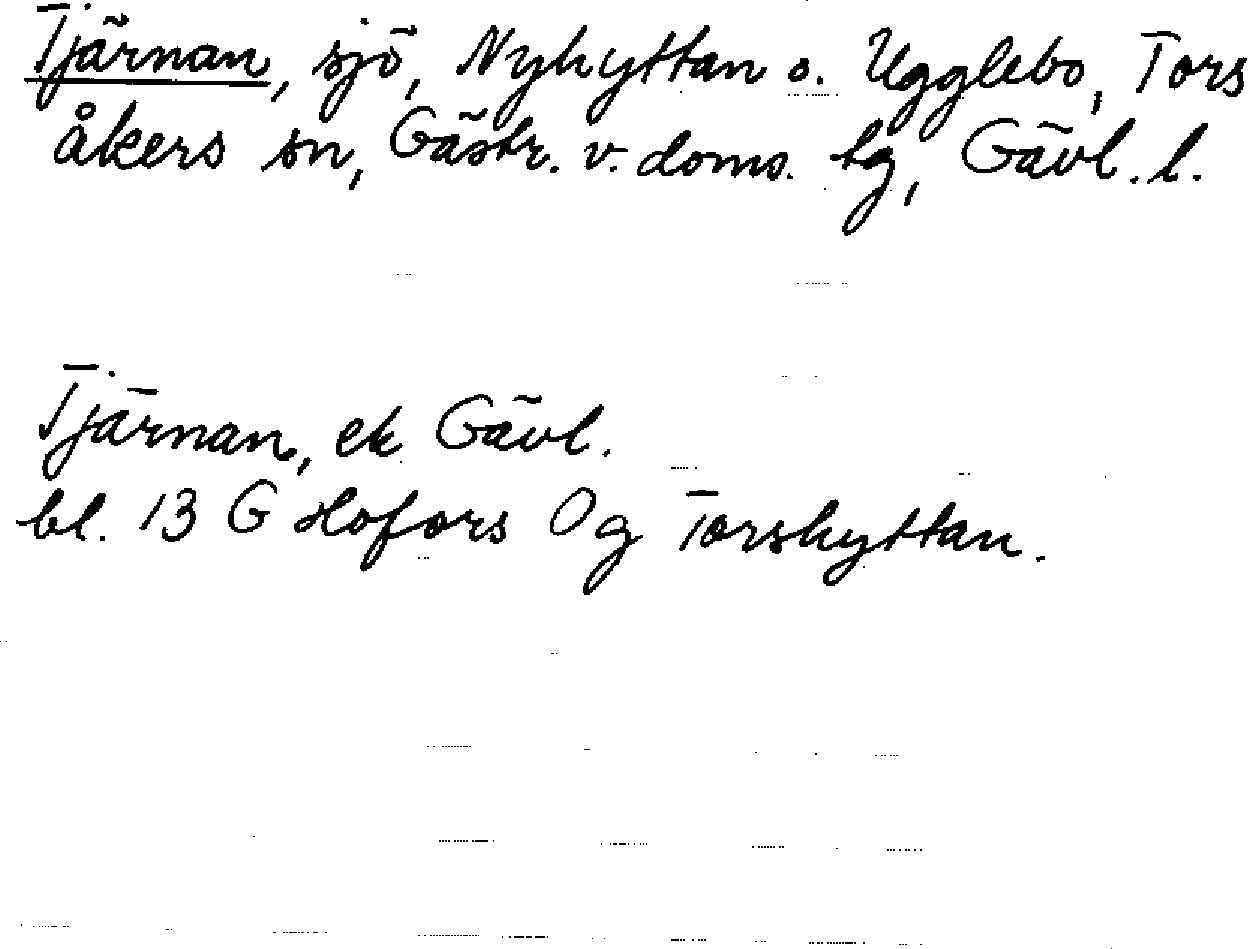 Tjärnan, sjö, Nyhyttan o. Ugglebo, Tors
åkers sn, Gästr. v. doms. tg, Gävl. l.
Tjärnan, ek Gävl.
bl. 13 G Hofors 0 g Torshyttan.